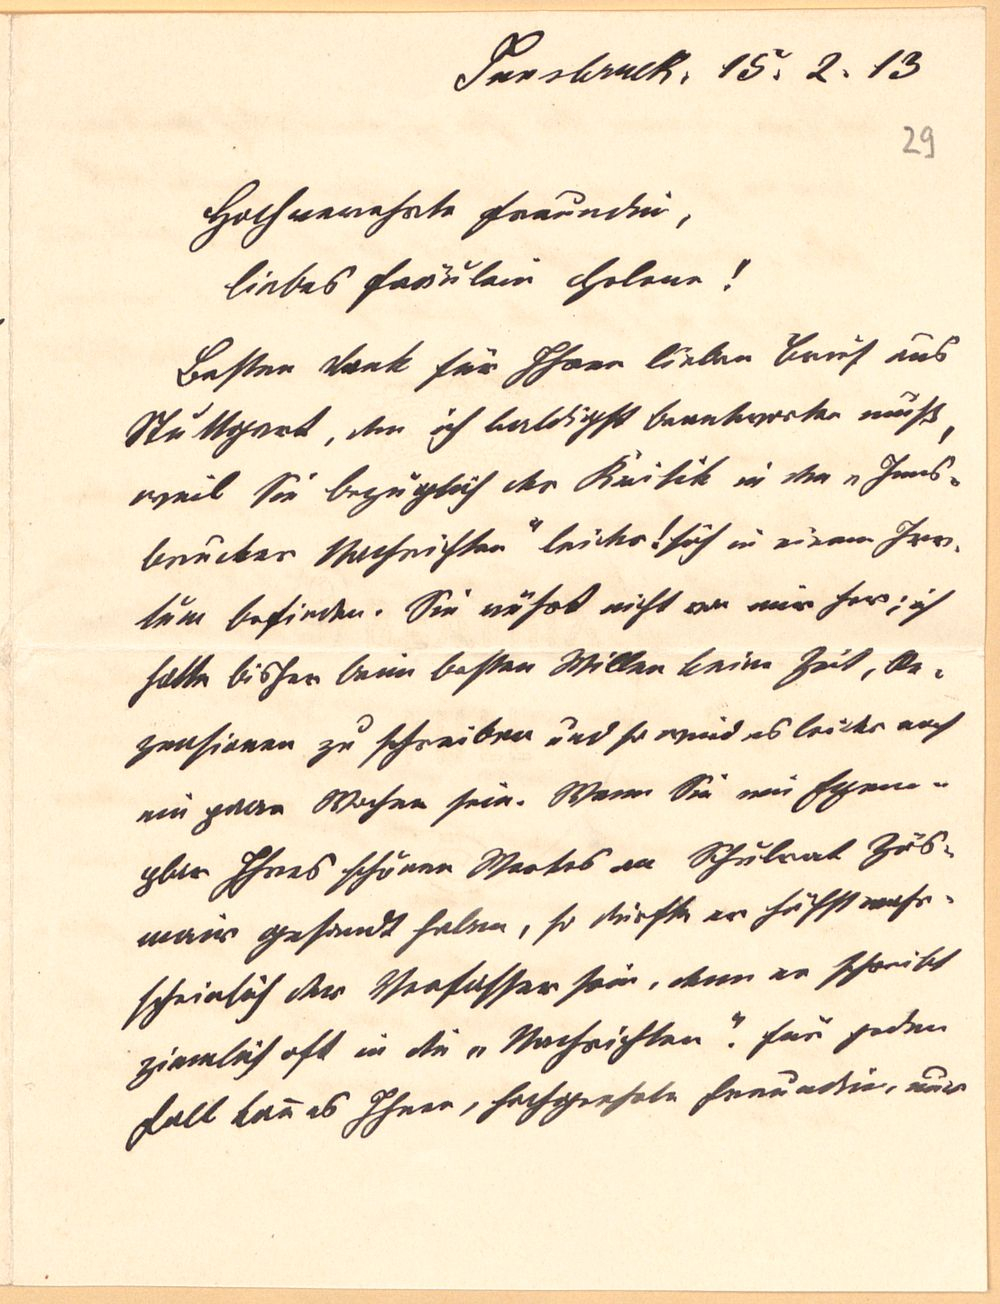 Innsbruck. 15. 2. 13
29
Hochverehrte Freundin,
liebes Fräulein Helene!
Besten Dank für Ihren lieben Brief aus
Stuttgart, den ich baldigst beantworten muß,
weil Sie bezüglich der Kritik in den „Inns-
brucker Nachrichten" leider! sich in einem Irr-
tum befinden. Sie rührt nicht von mir her; ich
hatte bisher beim besten Willen keine Zeit, Re-
zensionen zu schreiben und so wird es leider noch
ein paar Wochen sein. Wenn Sie ein Exem-
plar Ihres schönen Werkes an Schulrat Zös-
mair gesandt haben, so dürfte er höchst wahr-
scheinlich der Verfasser sein, denn er schreibt
ziemlich oft in die „Nachrichten". Für jeden
Fall kan̄ es Ihnen, hochgeehrte Freundin, nur